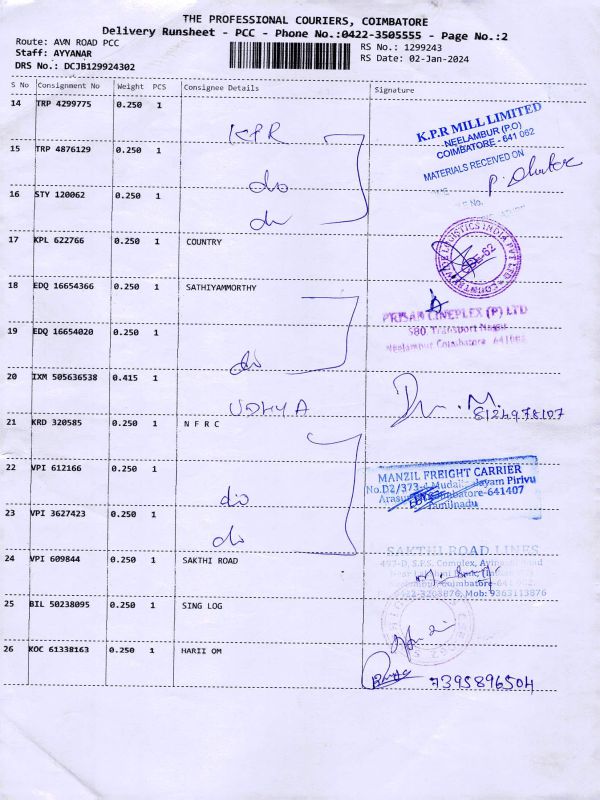 THE PROFESSIONAL COURIERS, COIMBATORE
Delivery Runsheet - PCC - Phone No.:0422-3505555 - Page No.:2
Route: AVN ROAD PCC RS No.: 1299243
Staff: AYYANAR RS Date: 02-Jan-2024
DRS No.: DCJB129924302
S No Consignment No Weight PCS Consignee Details Signature
14 TRP 4299775 0.250 1 KPR
K.P.R MILL LIMITED
NEELAMBUR (P.O)
COIMBATORE - 641 062
MATERIALS RECEIVED ON
15 TRP 4876129 0.250 1 do
16 STY 120062 0.250 1 do
17 KPL 622766 0.250 1 COUNTRY
18 EDQ 16654366 0.250 1 SATHIYAMMORTHY
PRISAM CINEPLEX (P) LTD
580, Transport Nagar
Neelambur Coimbatore 641062
19 EDQ 16654020 0.250 1 do
20 IXM 505636538 0.415 1 UDHYA
8124978107
21 KRD 320585 0.250 1 N F R C
22 VPI 612166 0.250 1 do
MANZIL FREIGHT CARRIER
No.D2/373-4 Pirivu
Coimbatore-641407
Tamilnadu
23 VPI 3627423 0.250 1 do
24 VPI 609844 0.250 1 SAKTHI ROAD
SAKTHI ROAD LINES
497-D, S.F.S. Complex, Avinashi Road
Mob: 9363113876
25 BIL 50238095 0.250 1 SING LOG
26 KOC 61338163 0.250 1 HARII OM
7395896504